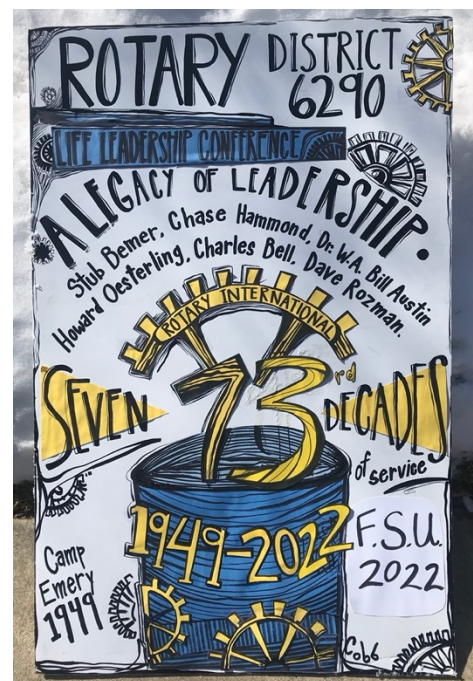 ROTARY DISTRICT 6290
LIFE LEADERSHIP CONFERENCE
A LEGACY OF LEADERSHIP.
Stub Bemer, Chase Hammond, Dr. W.A. Bill Austin
Howard Oesterling, Charles Bell, Dave Rozman.
ROTARY INTERNATIONAL
73rd
SEVEN DECADES
of service
1949-2022
F.S.U.
2022
Camp
Emery
1949
Cobb